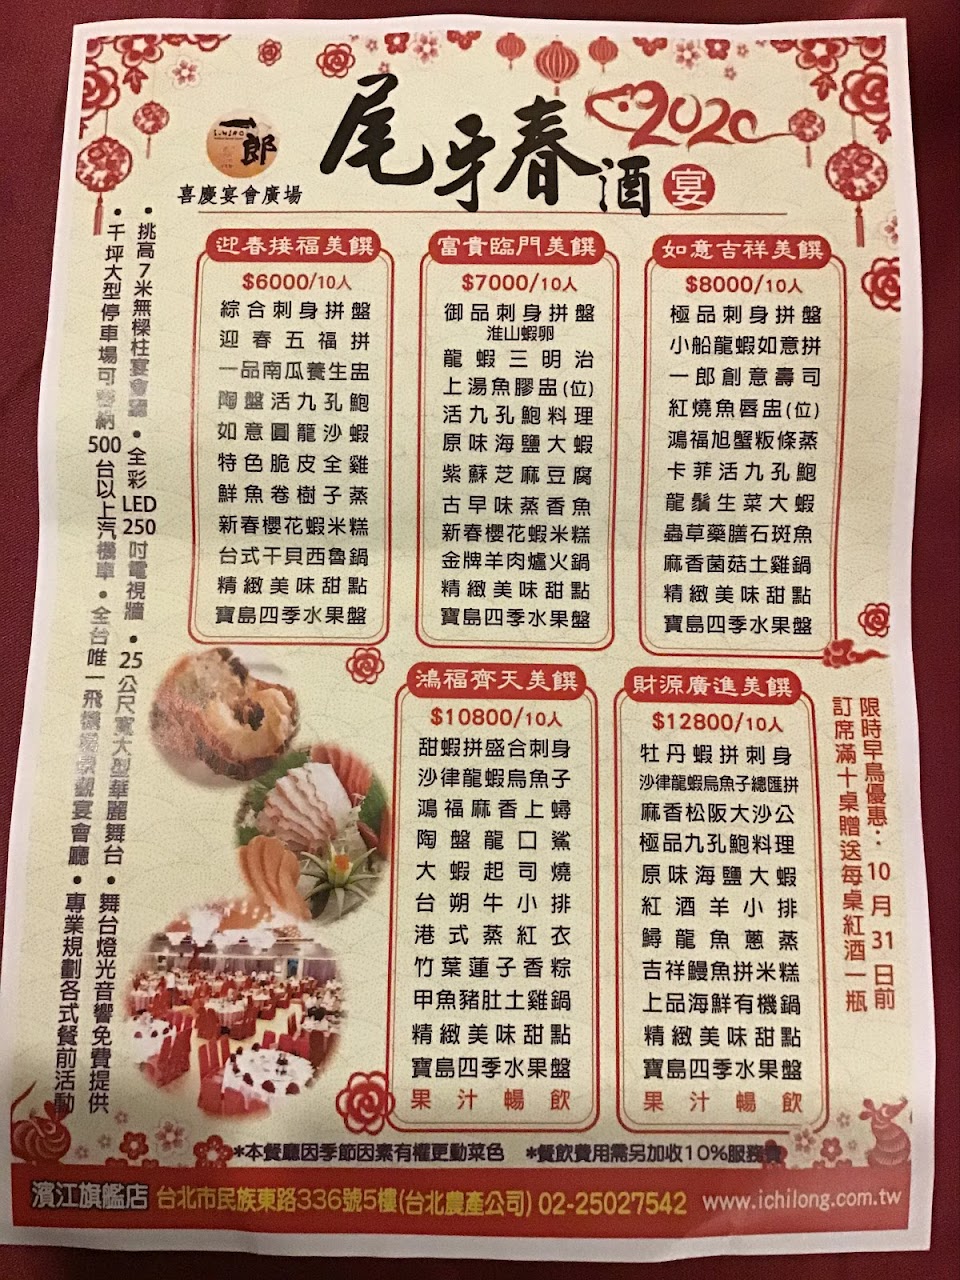 一郎
喜慶宴會廣場
尾牙春酒宴
2020
迎春接福美饌
$6000/10人
綜合刺身拼盤
迎春五福拼
一品南瓜養生盅
陶盤活九孔鮑
如意圓籠沙蝦
特色脆皮全雞
鮮魚卷樹子蒸
新春櫻花蝦米糕
台式干貝西魯鍋
精緻美味甜點
寶島四季水果盤
富貴臨門美饌
$7000/10人
御品刺身拼盤
淮山蝦卵
龍蝦三明治
上湯魚膠盅(位)
活九孔鮑料理
原味海鹽大蝦
紫蘇芝麻豆腐
古早味蒸香魚
新春櫻花蝦米糕
金牌羊肉爐火鍋
精緻美味甜點
寶島四季水果盤
如意吉祥美饌
$8000/10人
極品刺身拼盤
小船龍蝦如意拼
一郎創意壽司
紅燒魚唇盅(位)
鴻福旭蟹粄條蒸
卡菲活九孔鮑
龍鬚生菜大蝦
蟲草藥膳石斑魚
麻香菌菇土雞鍋
精緻美味甜點
寶島四季水果盤
鴻福齊天美饌
$10800/10人
甜蝦拼盛合刺身
沙律龍蝦烏魚子
鴻福麻香上蟳
陶盤龍口鯊
大蝦起司燒
台朔牛小排
港式蒸紅衣
竹葉蓮子香粽
甲魚豬肚土雞鍋
精緻美味甜點
寶島四季水果盤
果汁暢飲
財源廣進美饌
$12800/10人
牡丹蝦拼刺身
沙律龍蝦烏魚子總匯拼
麻香松阪大沙公
極品九孔鮑料理
原味海鹽大蝦
紅酒羊小排
鱘龍魚蔥蒸
吉祥鰻魚拼米糕
上品海鮮有機鍋
精緻美味甜點
寶島四季水果盤
果汁暢飲
限時早鳥優惠：10月31日前
訂席滿十桌贈送每桌紅酒一瓶
•挑高7米無樑柱宴會廳•全彩LED250吋電視牆•25公尺寬大型華麗舞台•舞台燈光音響免費提供
•千坪大型停車場可容納500台以上汽機車•全台唯一飛機場景觀宴會廳•專業規劃各式餐前活動
*本餐廳因季節因素有權更動菜色 *餐飲費用需另加收10%服務費
濱江旗艦店 台北市民族東路336號5樓(台北農產公司) 02-25027542 www.ichilong.com.tw